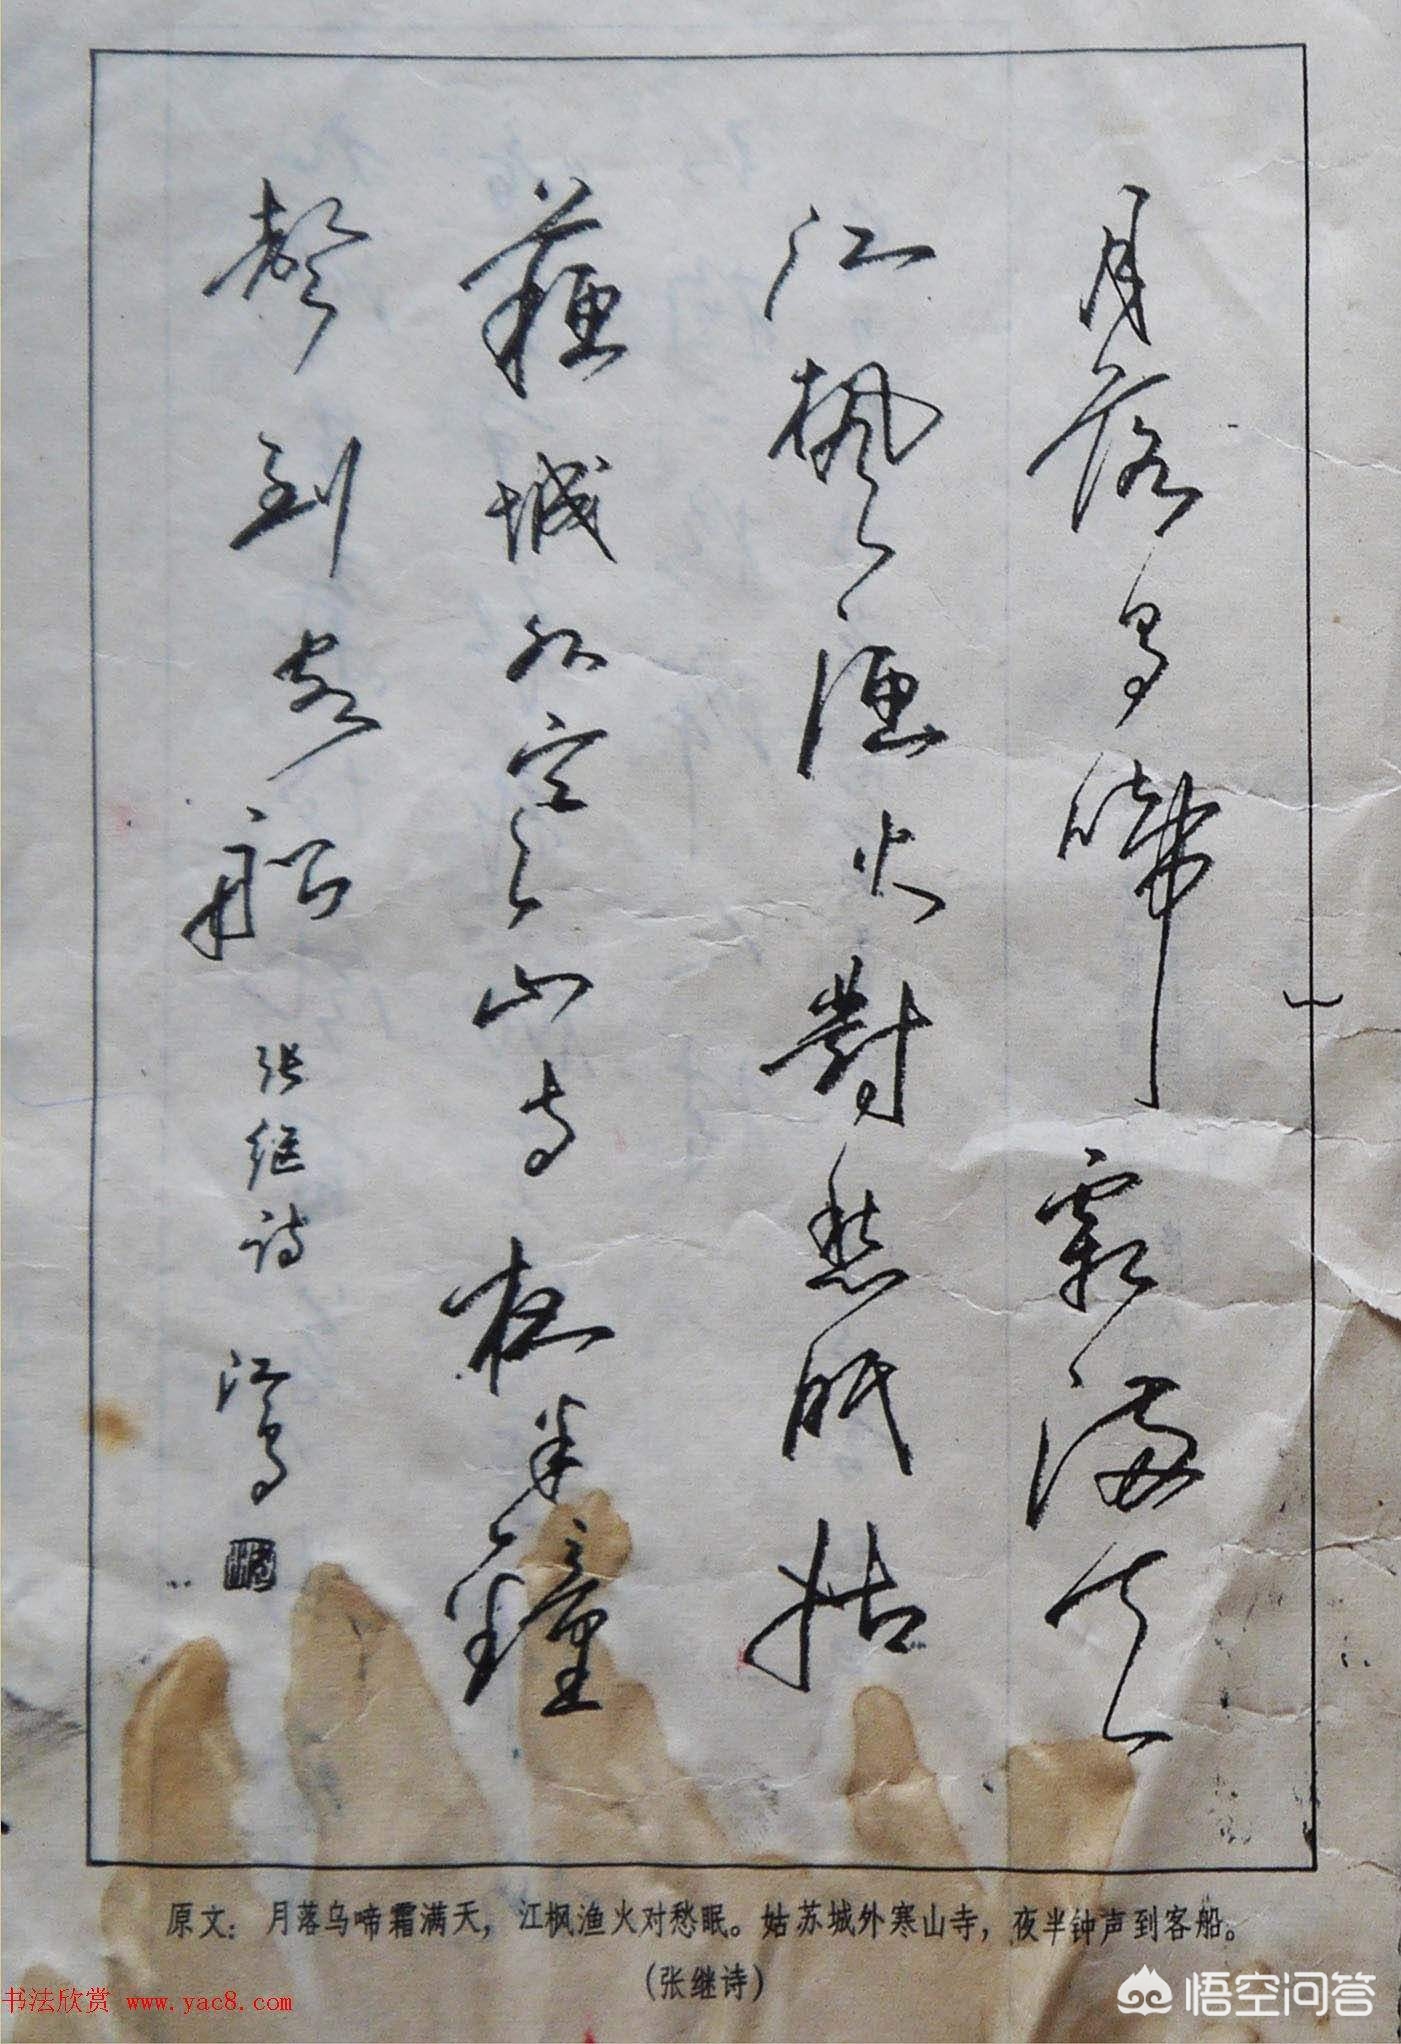 月落乌啼霜满天
江枫渔火對愁眠姑
蘇城外寒山寺夜半鐘
聲到客船
张继诗
江鸟
原文：月落乌啼霜满天，江枫渔火对愁眠。姑苏城外寒山寺，夜半钟声到客船。
（张继诗）
书法欣赏 www.yac8.com
悟空问答